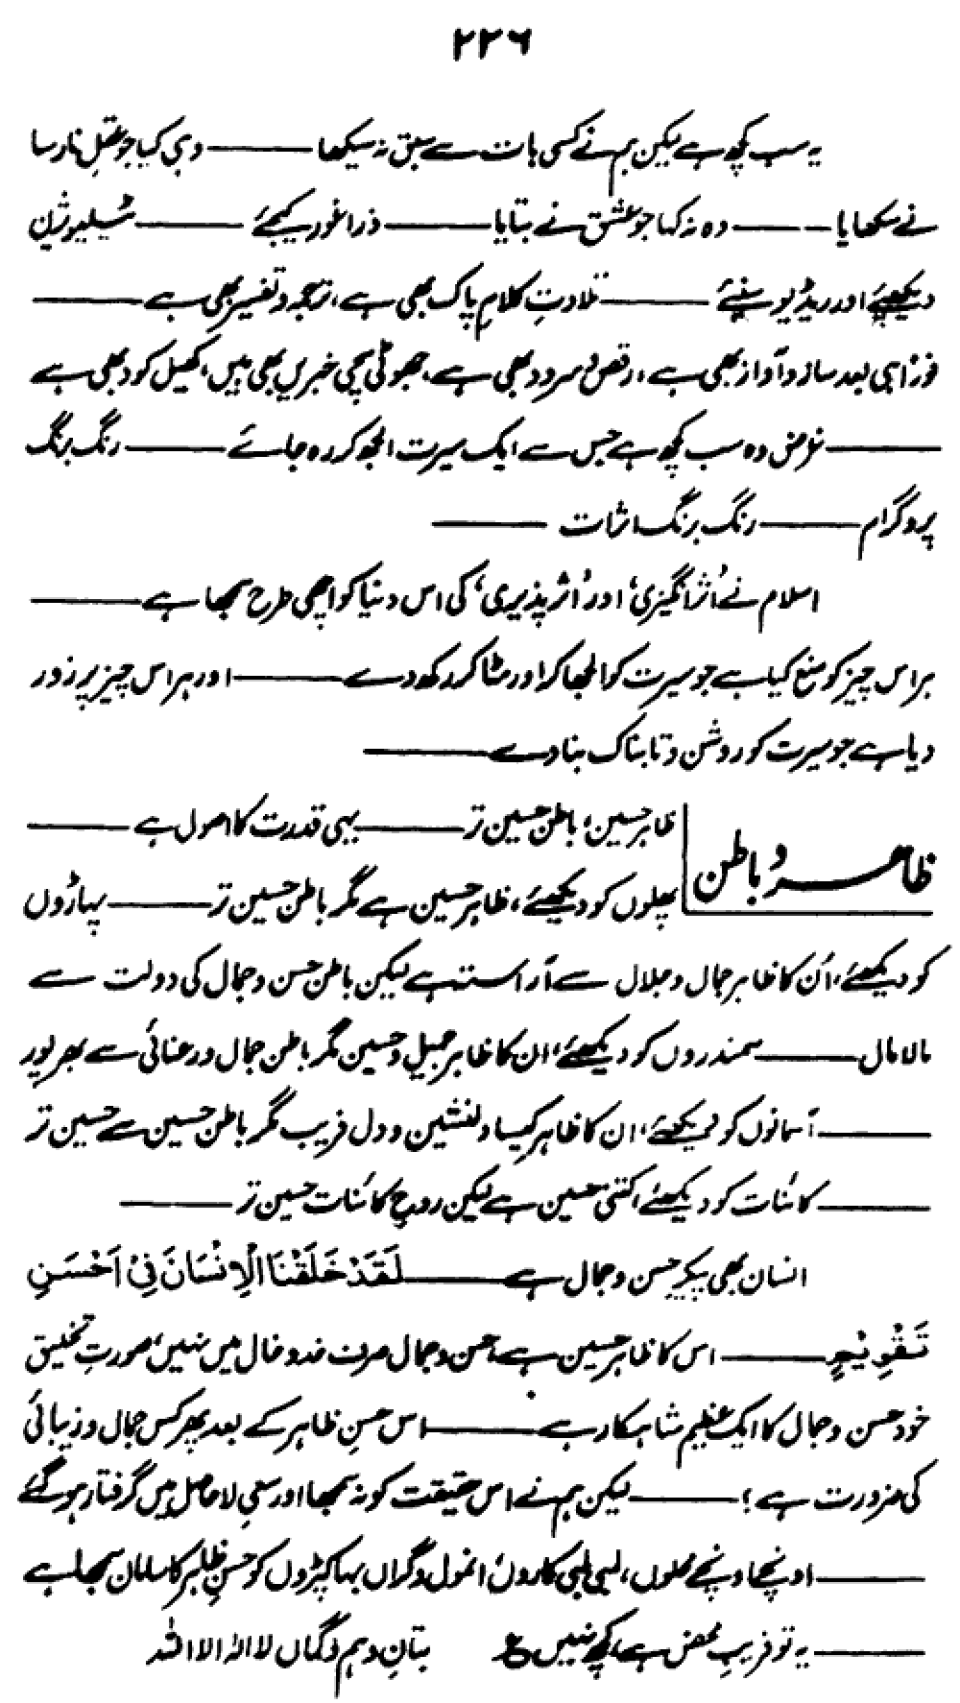 ۲۲۶
یہ سب کچھ ہے لیکن ہم نے کسی بات سے سبق نہ سیکھا ——— وہی کیا جو عقلِ نارسا
نے سکھایا ——— وہ نہ کہا جو عشق نے بتایا ——— ذرا غور کیجئے ——— ٹیلیویژن
دیکھئے اور ریڈیو سنیئے ——— تلاوتِ کلامِ پاک بھی ہے، ترجمہ و تفسیر بھی ہے ———
فوراً ہی بعد ساز و آواز بھی ہے، رقص و سرود بھی ہے، جھوٹی سچی خبریں بھی ہیں، کھیل کود بھی ہے
——— غرض وہ سب کچھ ہے جس سے ایک سیرت الجھ کر رہ جائے ——— رنگ برنگ
پروگرام ——— رنگ برنگ اثرات ———
اسلام نے 'اثر انگیزی' اور 'اثر پذیری' کی اس دنیا کو اچھی طرح سمجھا ہے ———
ہر اس چیز کو منع کیا ہے جو سیرت کو الجھا کر اور مٹا کر رکھ دے ——— اور ہر اس چیز پر زور
دیا ہے جو سیرت کو روشن و تابناک بنا دے ———
ظاہر و باطن
ظاہر حسین، باطن حسین تر ——— یہی قدرت کا اصول ہے ———
پھلوں کو دیکھئے، ظاہر حسین ہے مگر باطن حسین تر ——— پہاڑوں
کو دیکھئے، اُن کا ظاہر جمال و جلال سے آراستہ ہے لیکن باطن حسن و جمال کی دولت سے
مالا مال ——— سمندروں کو دیکھئے، ان کا ظاہر جمیل و حسین مگر باطن جمال و رعنائی سے بھرپور
——— آسمانوں کو دیکھئے، ان کا ظاہر کیسا دلنشین و دل فریب مگر باطن حسین سے حسین تر
——— کائنات کو دیکھئے کتنی حسین ہے لیکن روحِ کائنات حسین تر ———
انسان بھی پیکرِ حسن و جمال ہے ——— لَقَدْ خَلَقْنَا الْاِنْسَانَ فِیْ اَحْسَنِ
تَقْوِیْمٍ ——— اس کا ظاہر حسین ہے، حسن و جمال صرف خد و خال میں نہیں، صورتِ تخلیق
خود حسن و جمال کا ایک عظیم شاہکار ہے ——— اس حسنِ ظاہر کے بعد پھر کس جمال و زیبائی
کی ضرورت ہے؟ ——— لیکن ہم نے اس حقیقت کو نہ سمجھا اور سعیِ لاحاصل میں گرفتار ہو گئے
——— اونچے اونچے محلوں، لمبی لمبی کاروں، انمول و گراں بہا کپڑوں کو حسنِ ظاہر کا سامان سمجھا ہے
——— یہ تو فریبِ محض ہے، کچھ نہیں ع بتانِ وہم و گماں لا الہ الا اللہ